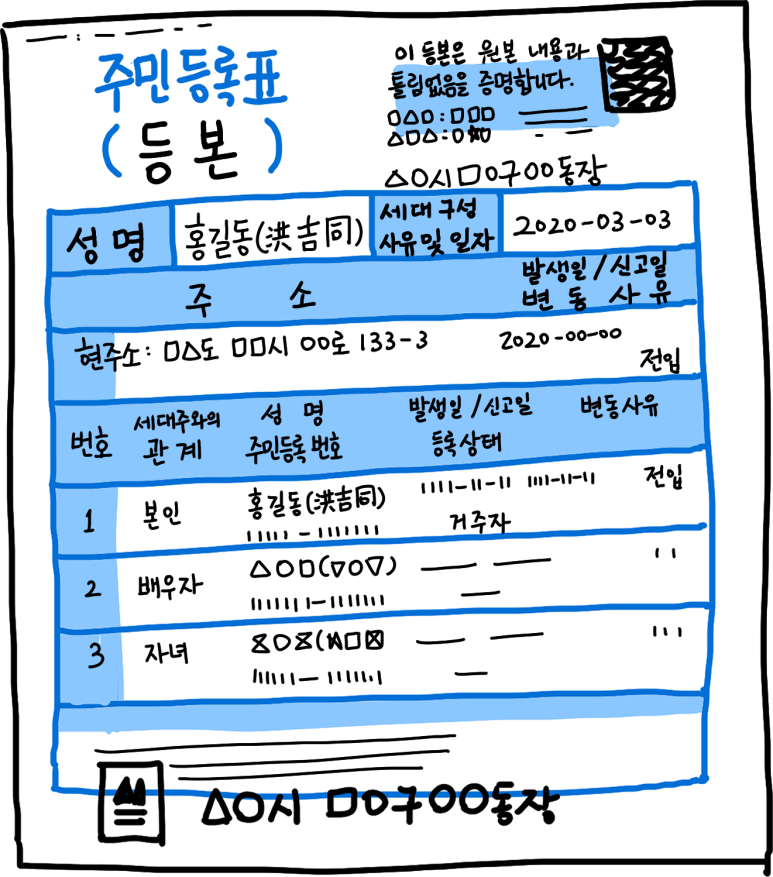 주민등록표
(등본)
이 등본은 원본 내용과
틀림없음을 증명합니다.
□△□:□□□
△□△:□
△○시 □○구○○동장
성명 홍길동(洪吉同) 세대구성 사유및일자 2020-03-03
주 소 발생일/신고일
변동사유
현주소: □△도 □□시 ○○로 133-3 2020-00-00
전입
번호 세대주와의 관계 성 명 주민등록번호 발생일/신고일 등록상태 변동사유
1 본인 홍길동(洪吉同) 전입
거주자
2 배우자 △○□(▽○▽)
3 자녀
△○시 □○구○○동장